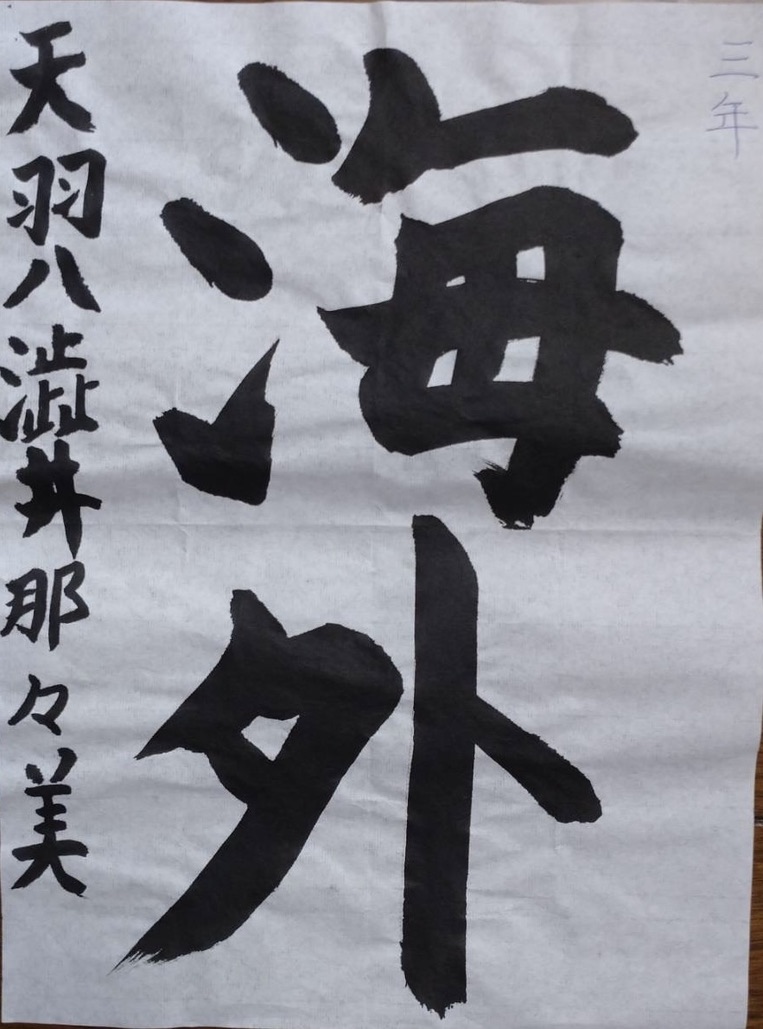 三年
海外
天羽八澁井那々美